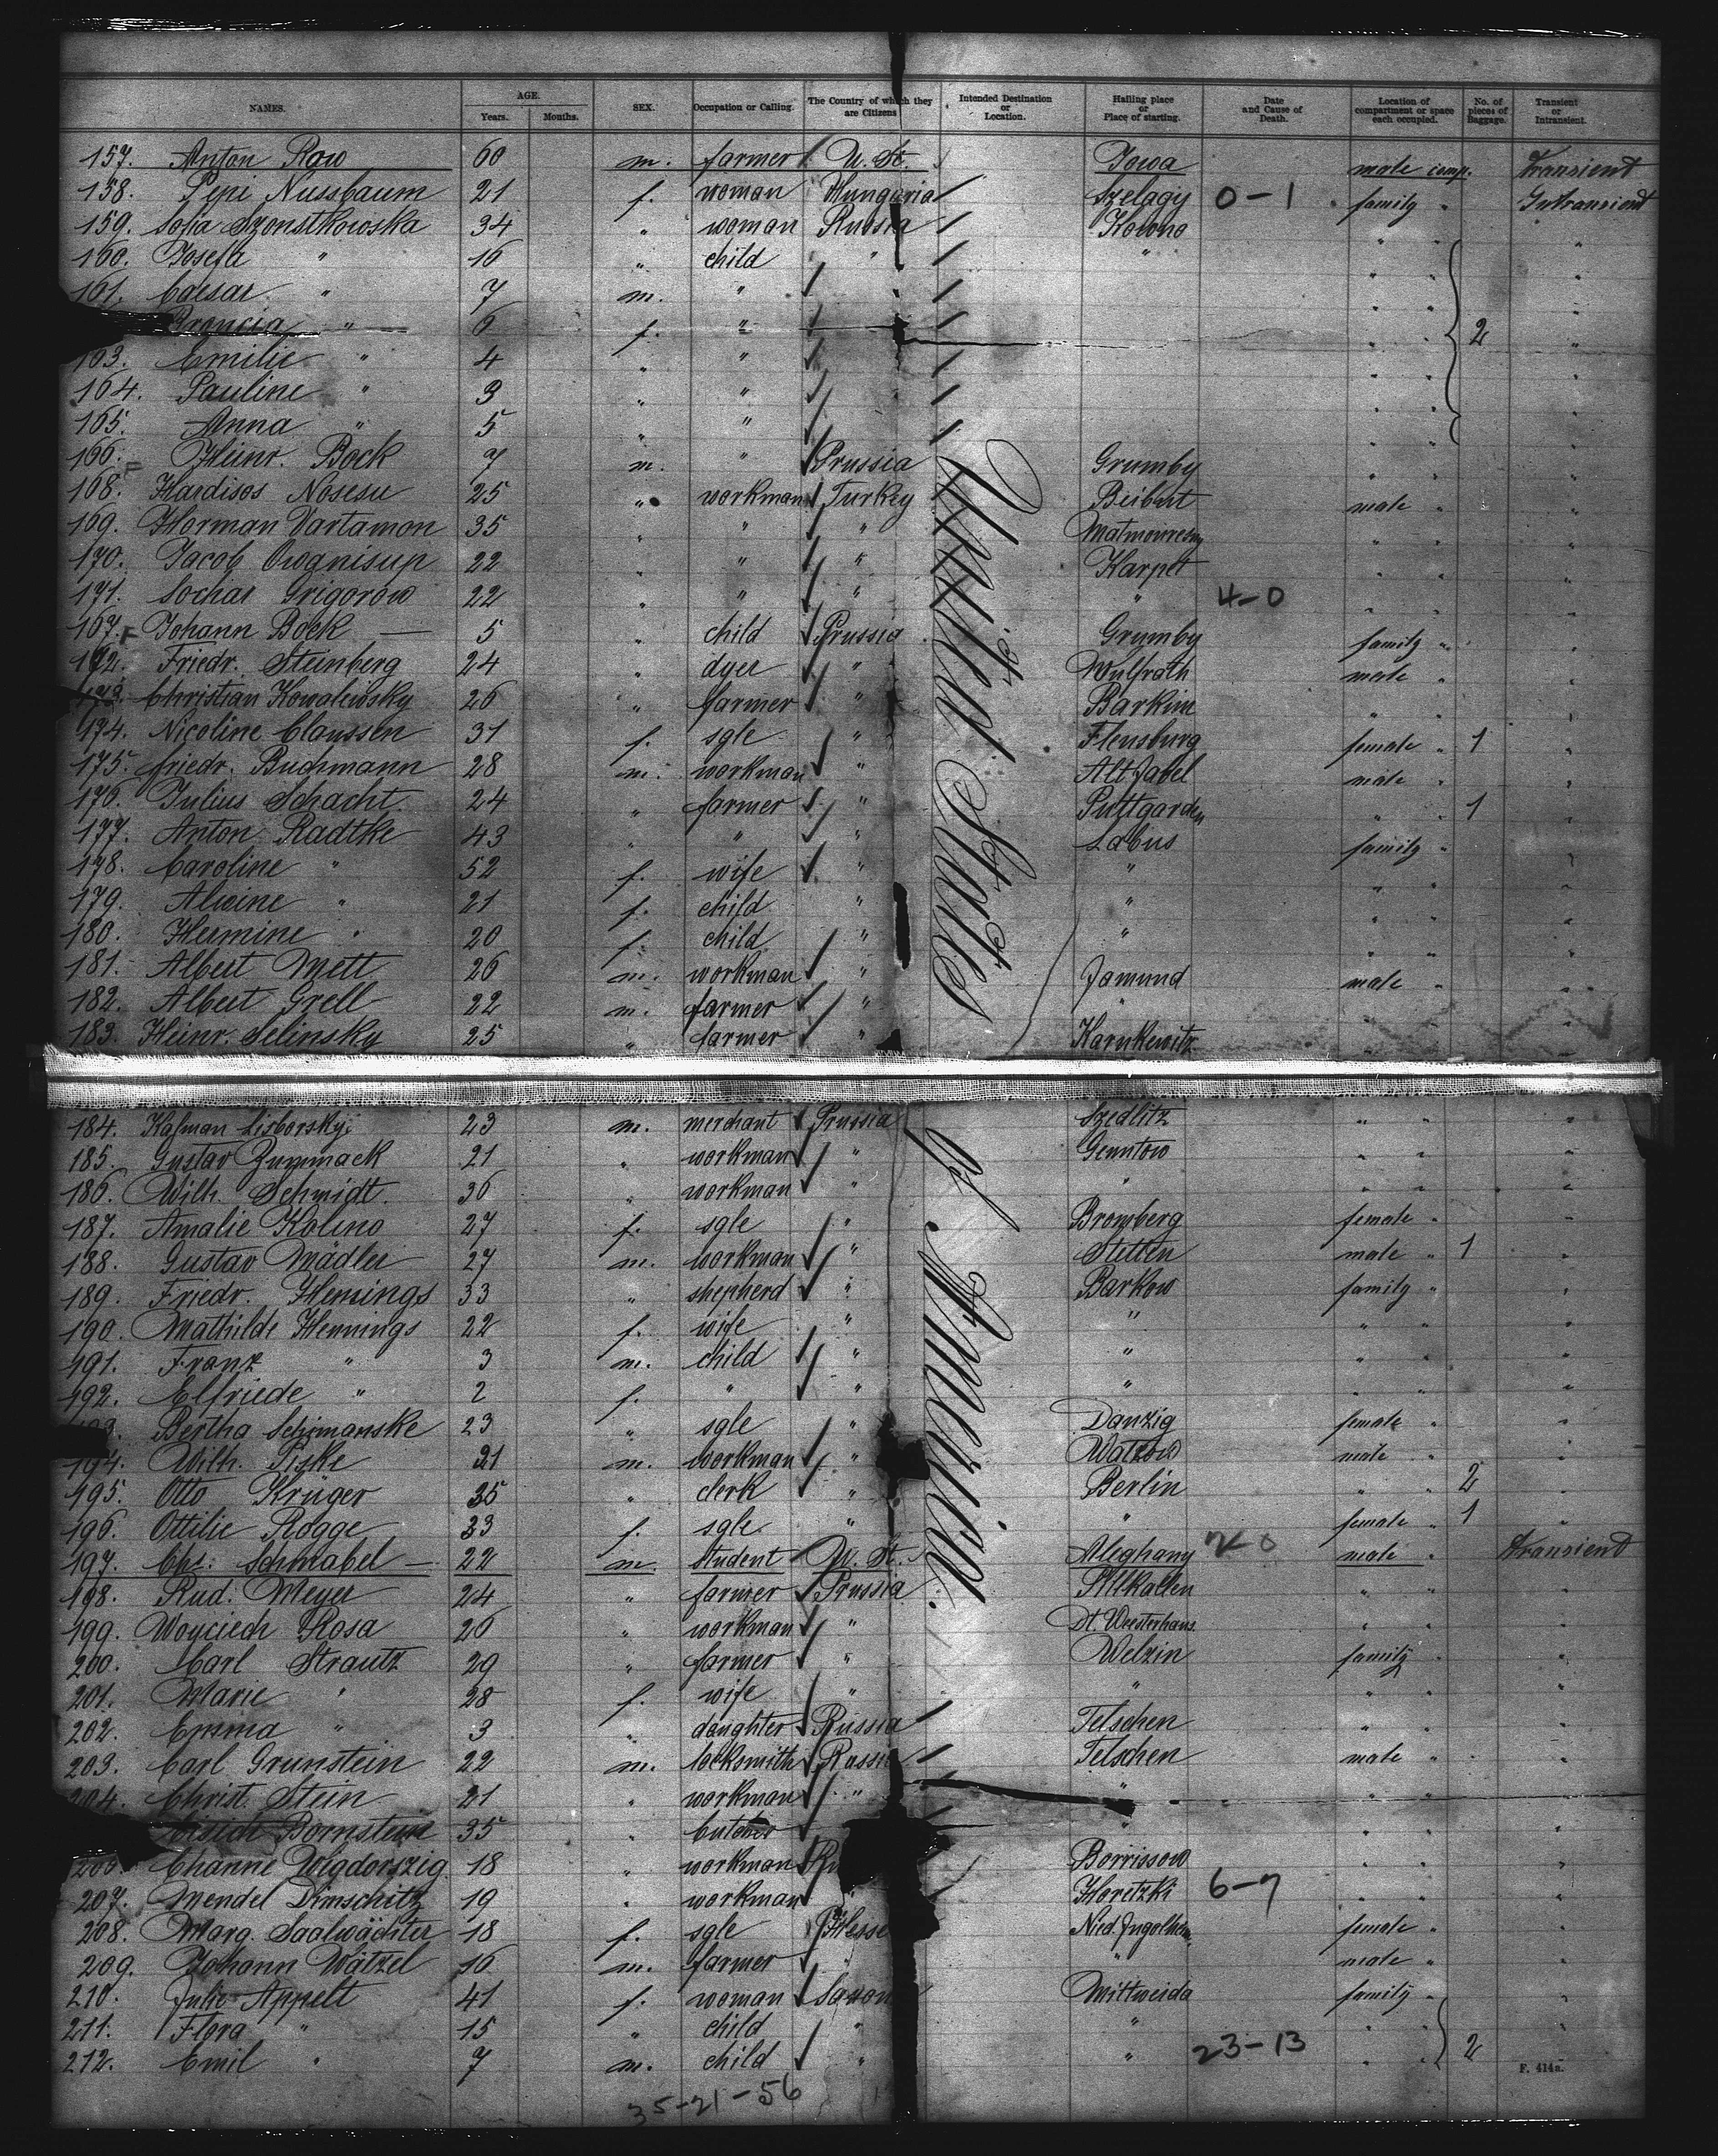 NAMES. AGE. Years. Months. SEX. Occupation or Calling. The Country of which they are Citizens Intended Destination or Location. Hailing place or Place of starting. Date and Cause of Death. Location of compartment or space each occupied. No. of pieces of Baggage. Transient or Intransient.
157. Anton Row 60 m. farmer U. St. Iowa male comp. Transient
158. Pepi Nussbaum 21 f. woman Hungaria Szelagy 0-1 family " Intransient
159. Sofia Szonstkowoska 34 " woman Russia Kowno " " "
160. Josefa " 16 " child " " " " "
161. Caesar " 7 m. " " " " "
Francia " 6 f. " " " 2 "
163. Emilie " 4 " " " " "
164. Pauline " 3 " " " " "
165. Anna " 5 " " " " "
166. F Heinr. Bock 7 m. " Prussia Grumby " " "
168. Hardisos Nosesu 25 " workman Turkey Beibert male " "
169. Horman Vartamon 35 " " " " " "
170. Jacob Owanisup 22 " " " Karpet " " "
171. Sochas Grigorow 22 " " " " 4-0 " " "
167. F Johann Bock — 5 " child Prussia Grumby family " "
172. Friedr. Steinberg 24 " dyer " Wulfrath male " "
173. Christian Kowalewsky 26 " farmer " Barkim " " "
174. Nicoline Claussen 31 f. sgle " Flensburg female " 1 "
175. Friedr. Buchmann 28 m. workman " Alt Jabel male " "
176. Julius Schacht 24 " farmer " Puttgarden " " 1 "
177. Anton Radtke 43 " " " Labus family " "
178. Caroline " 52 f. wife " " " " "
179. Alwine " 21 f. child " " " " "
180. Hermine " 20 f. child " " " " "
181. Albert Mett 26 m. workman " Jamund male " "
182. Albert Grell 22 m. farmer " " " " "
183. Heinr. Selinsky 25 " farmer " Karnkewitz " " "
184. Kalman Lisborsky 23 m. merchant Prussia Szedlitz " " "
185. Gustav Zummack 21 " workman " Genntow " " "
186. Wilh. Schmidt 36 " workman " " " " "
187. Amalie Kolino 27 f. sgle " Bromberg female " "
188. Gustav Mädler 27 m. workman " Stettin male " 1 "
189. Friedr. Hennings 33 " shepherd " Barkow family " "
190. Mathilde Hennings 22 f. wife " " " " "
191. Franz " 3 m. child " " " " "
192. Elfriede " 2 f. " " " " " "
Bertha Schimanske 23 " sgle " Danzig female " "
194. Wilh. Piske 21 m. workman " Watzow male " "
195. Otto Krüger 35 " clerk " Berlin " " 2 "
196. Ottilie Rogge 23 f. sgle " " female " 1 "
197. Chr: Schnabel — 22 m. student U. St. Aleghany 2-0 male " Transient
198. Rud. Meyer 24 " farmer Prussia " " "
199. Woyciech Rosa 26 " workman " " " "
200. Carl Strautz 29 " farmer " Welzin family "
201. Marie " 28 f. wife " " " " "
202. Emma " 3 " daughter Russia Telschen " " "
203. Carl Grunstein 22 m. locksmith Russia Telschen male " "
204. Christ. Stein 21 " workman " " " " "
Bornstein 35 " butcher " " " "
206. Channe Wigdorszig 18 " workman Borrissow " " "
207. Mendel Dimschitz 19 " workman " Horetzki 6-7 " " "
208. Marg. Saalwächter 18 f. sgle Hesse Nied. Ingelheim female " "
209. Johann Wätzel 16 m. farmer " " male " "
210. Julie Appelt 41 f. woman Saxon Mittweida family " "
211. Flora " 15 " child " " " " "
212. Emil " 7 m. child " " 23-13 " " 2
United States of America.
F. 414a.
35-21-56